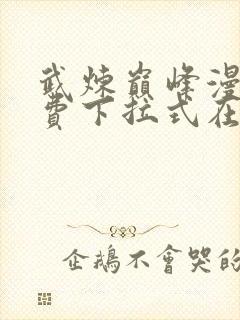 武炼巔峰漫
費下拉式在
企鵝不會哭的